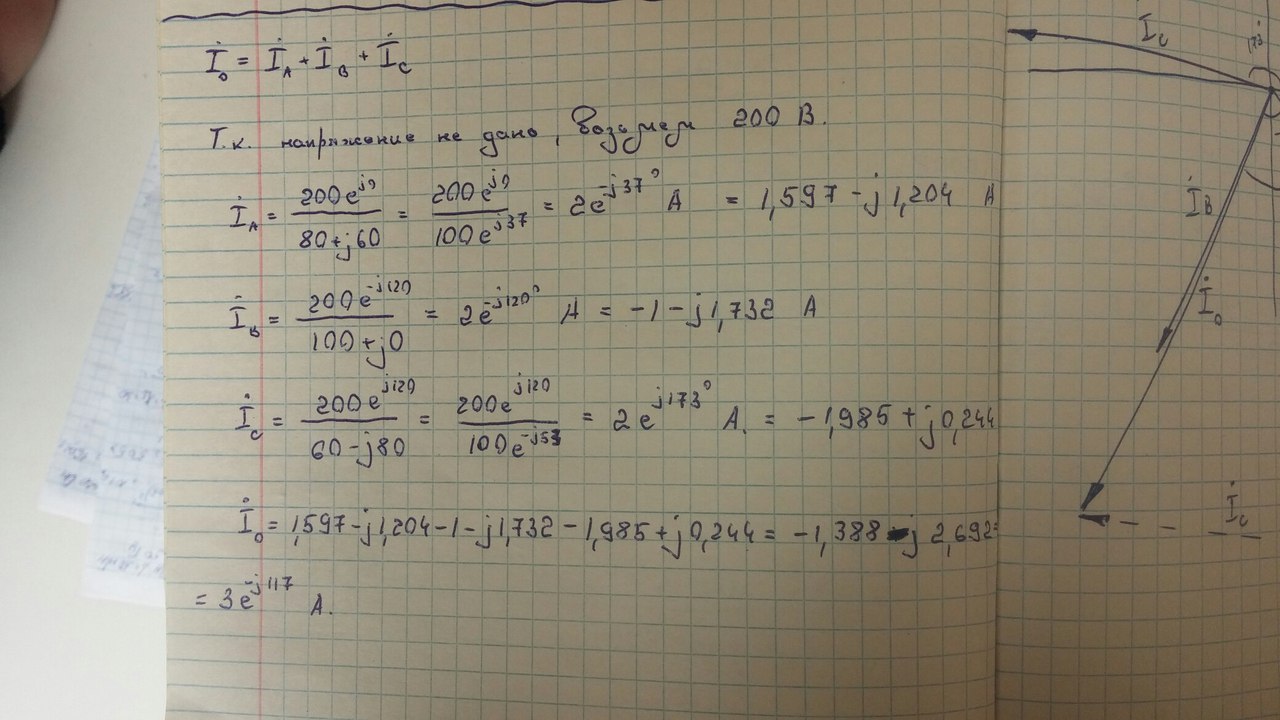 İ₀ = İ_A + İ_B + İ_C
Т.к. напряжение не дано, возьмем 200 В.
İ_A = 200e^{j0} / (80+j60) = 200e^{j0} / 100e^{j37} = 2e^{-j37°} А = 1,597 - j1,204 А
İ_B = 200e^{-j120} / (100+j0) = 2e^{-j120°} А = -1 - j1,732 А
İ_C = 200e^{j120} / (60-j80) = 200e^{j120} / 100e^{-j53} = 2e^{j173°} А. = -1,985 + j0,244
İ₀ = 1,597-j1,204-1-j1,732-1,985+j0,244 = -1,388 - j 2,692=
= 3e^{-j117} А.
İ_C
173
İ_B
İ₀
İ_C